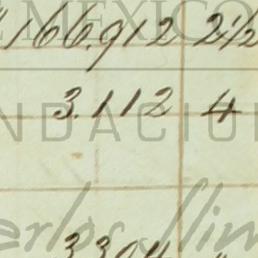 MEXICO
166.912 2½
3.112 4
NDACIO
Carlos Slim